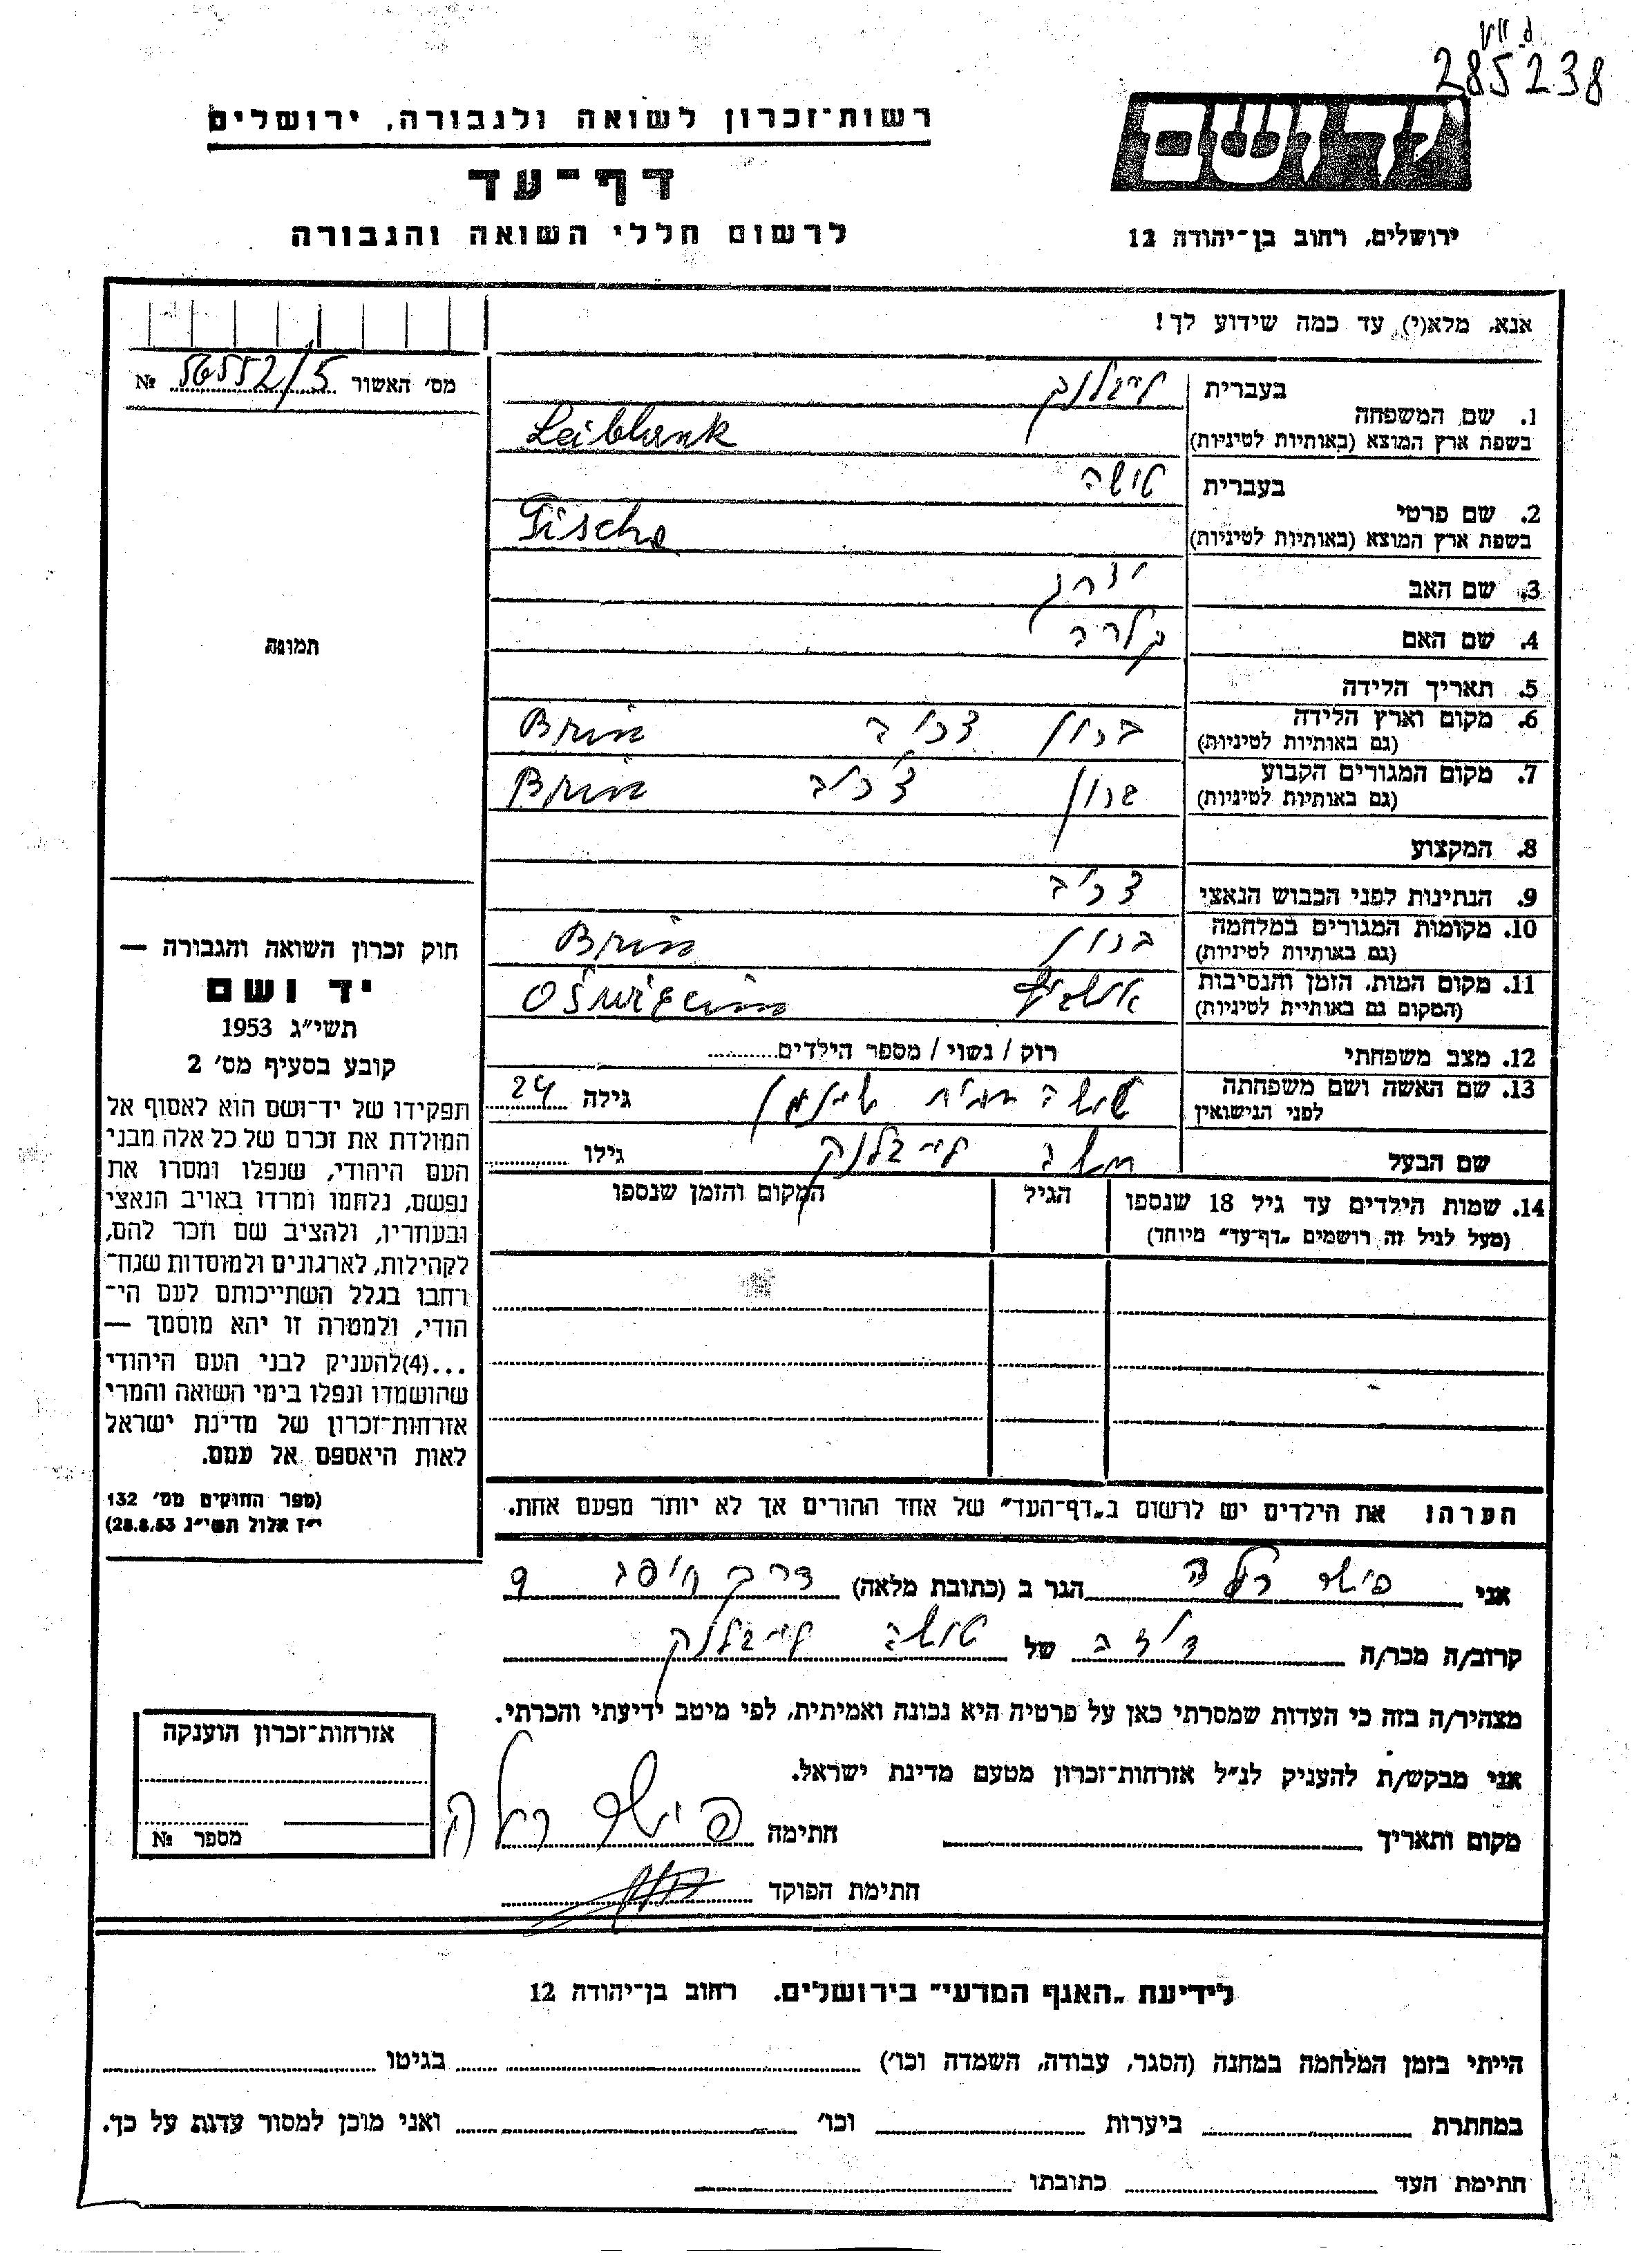 285238
רשות־זכרון לשואה ולגבורה, ירושלים
דף־עד
לרשום חללי השואה והגבורה
יד ושם
ירושלים, רחוב בן־יהודה 12
אנא, מלא(י) עד כמה שידוע לך!
מס׳ האשור 56552/5 №
תמונה
1. שם המשפחה
בעברית לייבלנק
בשפת ארץ המוצא (באותיות לטיניות) Leiblank
2. שם פרטי
בעברית טושה
בשפת ארץ המוצא (באותיות לטיניות)
3. שם האב
4. שם האם קלרה
5. תאריך הלידה
6. מקום וארץ הלידה ברון צכ׳ב Brün
(גם באותיות לטיניות)
7. מקום המגורים הקבוע ברון צ׳כ׳ב Brün
(גם באותיות לטיניות)
8. המקצוע
9. הנתינות לפני הכבוש הנאצי צכ׳ב
10. מקומות המגורים במלחמה ברון Brün
(גם באותיות לטיניות)
11. מקום המות, הזמן והנסיבות Oświęcim
(המקום גם באותיות לטיניות)
12. מצב משפחתי רוק / נשוי / מספר הילדים
13. שם האשה ושם משפחתה טושה גילה 24
לפני הנישואין
שם הבעל לייבלנק גילו
14. שמות הילדים עד גיל 18 שנספו הגיל המקום והזמן שנספו
(מעל לגיל זה רושמים „דף־עד״ מיוחד)
הערה! את הילדים יש לרשום ב„דף־העד״ של אחד ההורים אך לא יותר מפעם אחת.
חוק זכרון השואה והגבורה —
יד ושם
תשי״ג 1953
קובע בסעיף מס׳ 2
תפקידו של יד־ושם הוא לאסוף אל
המולדת את זכרם של כל אלה מבני
העם היהודי, שנפלו ומסרו את
נפשם, נלחמו ומרדו באויב הנאצי
ובעוזריו, ולהציב שם וזכר להם,
לקהילות, לארגונים ולמוסדות שנח־
רחבו בגלל השתייכותם לעם הי־
הודי, ולמטרה זו יהא מוסמך —
...(4)להעניק לבני העם היהודי
שהושמדו ונפלו בימי השואה והמרי
אזרחות־זכרון של מדינת ישראל
לאות היאספם אל עמם.
(ספר החוקים מס׳ 132
י״ז אלול תשי״ג 28.8.53)
אני פישר רלה הגר ב (כתובת מלאה) דרך 9
קרוב/ה מכר/ה דודה של טושה לייבלנק
מצהיר/ה בזה כי העדות שמסרתי כאן על פרטיה היא נכונה ואמיתית, לפי מיטב ידיעתי והכרתי.
אני מבקש/ת להעניק לנ״ל אזרחות־זכרון מטעם מדינת ישראל.
מקום ותאריך חתימה פישר רלה
חתימת הפוקד
אזרחות־זכרון הוענקה
מספר №
לידיעת „האגף המדעי״ בירושלים, רחוב בן־יהודה 12
הייתי בזמן המלחמה במחנה (הסגר, עבודה, השמדה וכו׳) בגיטו
במחתרת ביערות וכו׳ ואני מוכן למסור עדות על כך.
חתימת העד כתובתו